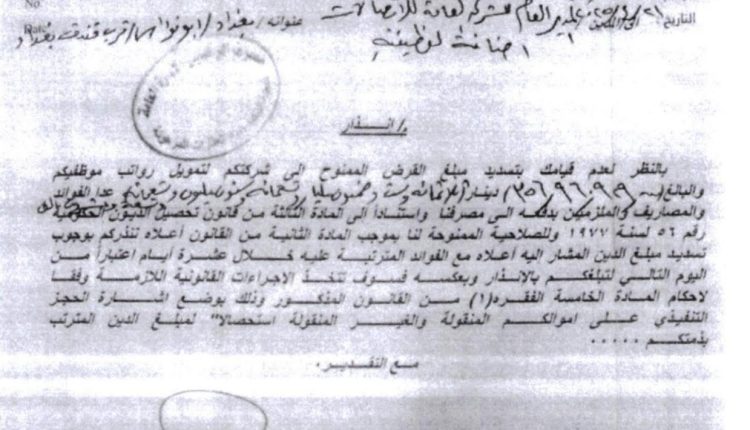 No.
التاريخ ٢١
المدير العام للشركة العامة للاتصالات عنوانه / بغداد / ابو نؤاس / قرب فندق بغداد
اضافة لوظيفته
م/ انـــذار
بالنظر لعدم قيامك بتسديد مبلغ القرض الممنوح الى شركتكم لتمويل رواتب موظفيكم
والبالغ دينار ثلاثمائة وست وخمسون مليار وستون مليون عدا الفوائد
والمصاريف والملزمين بدفعه الى مصرفنا واستناداً الى المادة الثالثة من قانون تحصيل الديون الحكومية
رقم ٥٦ لسنة ١٩٧٧ وللصلاحية الممنوحة لنا بموجب المادة الثانية من القانون أعلاه ننذركم بوجوب
تسديد مبلغ الدين المشار اليه أعلاه مع الفوائد المترتبة عليه خـــلال عشـــرة أيـــام اعتبـاراً مـــن
اليوم التالي لتبلغكم بالانذار وبعكسه فسوف نتخذ الاجراءات القانونية اللازمـة وفقـا
لاحكام المادة الخامسة الفقره(١) مـــن القـانون المذكـور وذلـك بوضـع اشــارة الحجز
التنفيذي علـــى اموالكـــم المنقولة والغـير المنقولة استحصالا" لمبلـغ الدين المترتب
بذمتكـــم .....
مـع التقديـر .